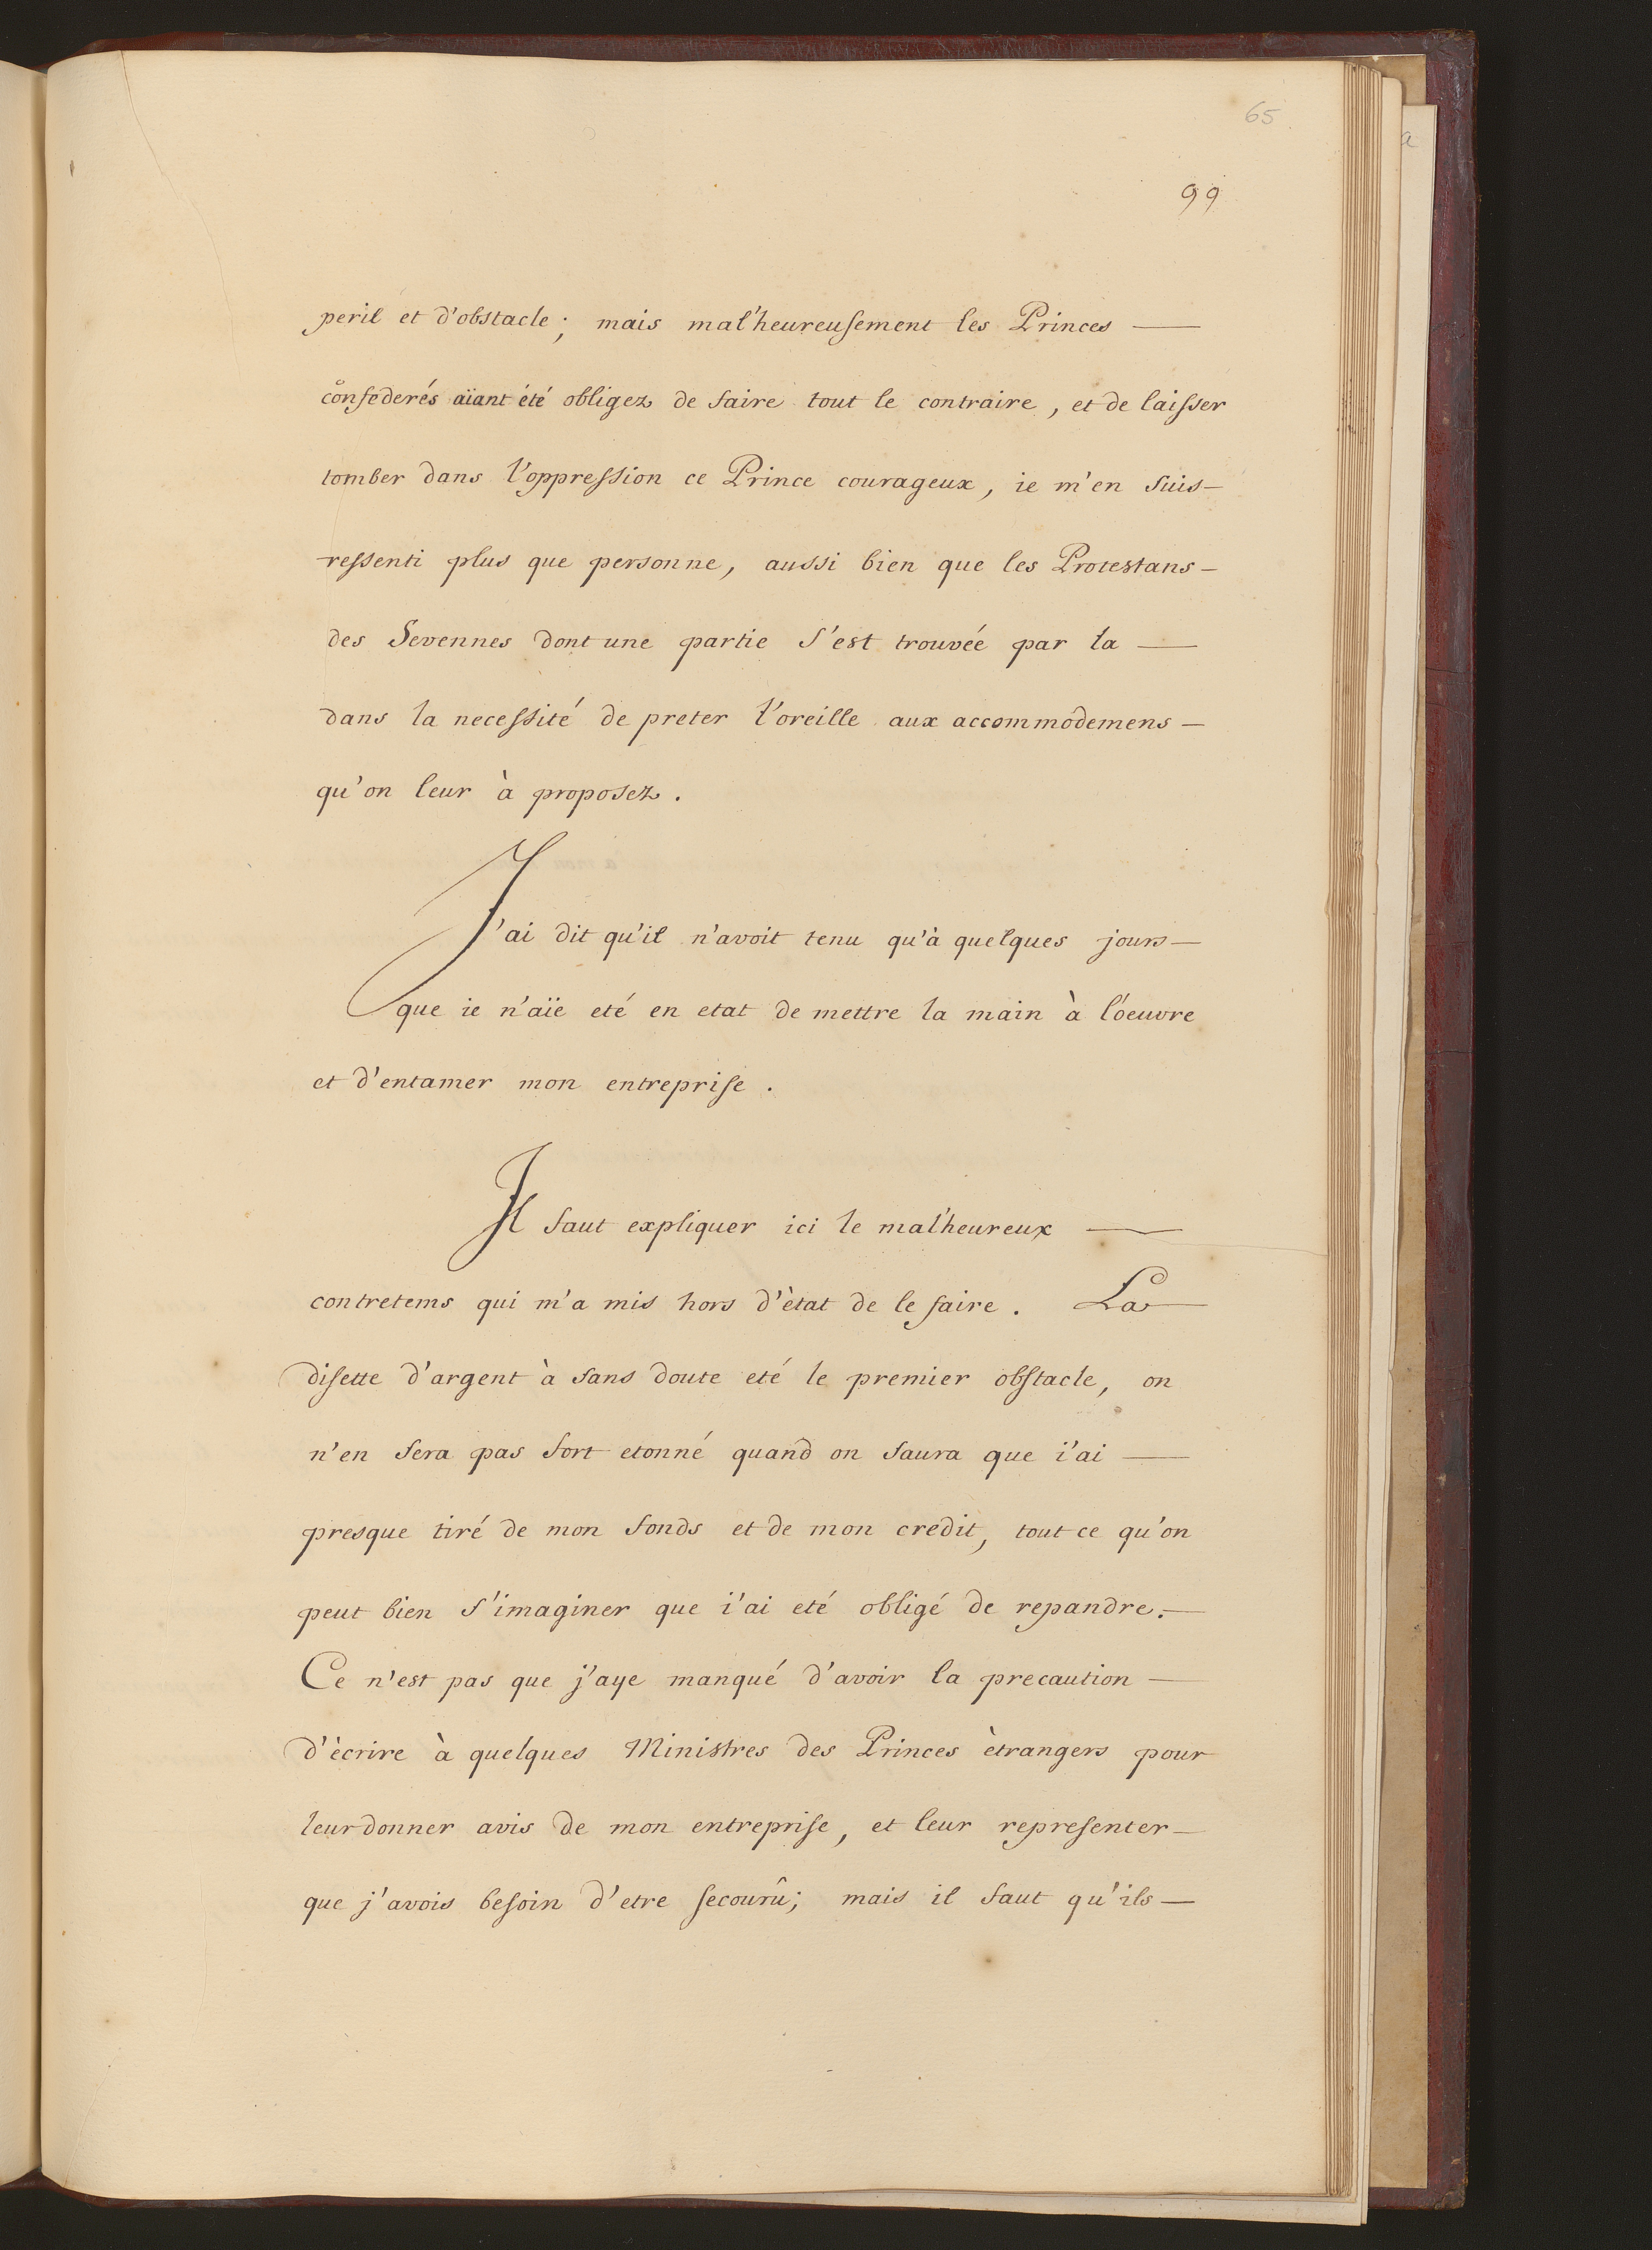 65
99
peril et d'obstacle; mais mal'heureusement les Princes —
confederés aïant été obligez de faire tout le contraire, et de laisser
tomber dans l'oppression ce Prince courageux, ie m'en suis —
ressenti plus que personne, aussi bien que les Protestans —
des Sevennes dont une partie s'est trouvée par la —
dans la necessité de preter l'oreille aux accommodemens —
qu'on leur à proposez.
J'ai dit qu'il n'avoit tenu qu'à quelques jours —
que ie n'aïe eté en etat de mettre la main à l'oeuvre
et d'entamer mon entreprise.
Il faut expliquer ici le mal'heureux —
contretems qui m'a mis hors d'ètat de le faire. La
disette d'argent à sans doute eté le premier obstacle, on
n'en sera pas fort etonné quand on saura que i'ai —
presque tiré de mon fonds et de mon credit, tout ce qu'on
peut bien s'imaginer que i'ai eté obligé de repandre. —
Ce n'est pas que j'aye manqué d'avoir la precaution —
d'ècrire à quelques Ministres des Princes ètrangers pour
leur donner avis de mon entreprise, et leur representer —
que j'avois besoin d'etre secourû; mais il faut qu'ils —